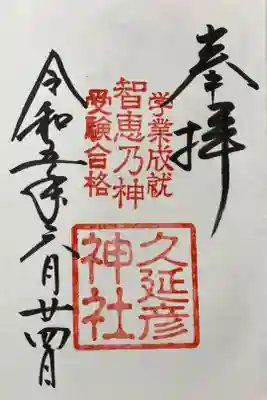 奉拝
学業成就
智恵乃神
受験合格
久延彦
神社
令和五年六月廿四日